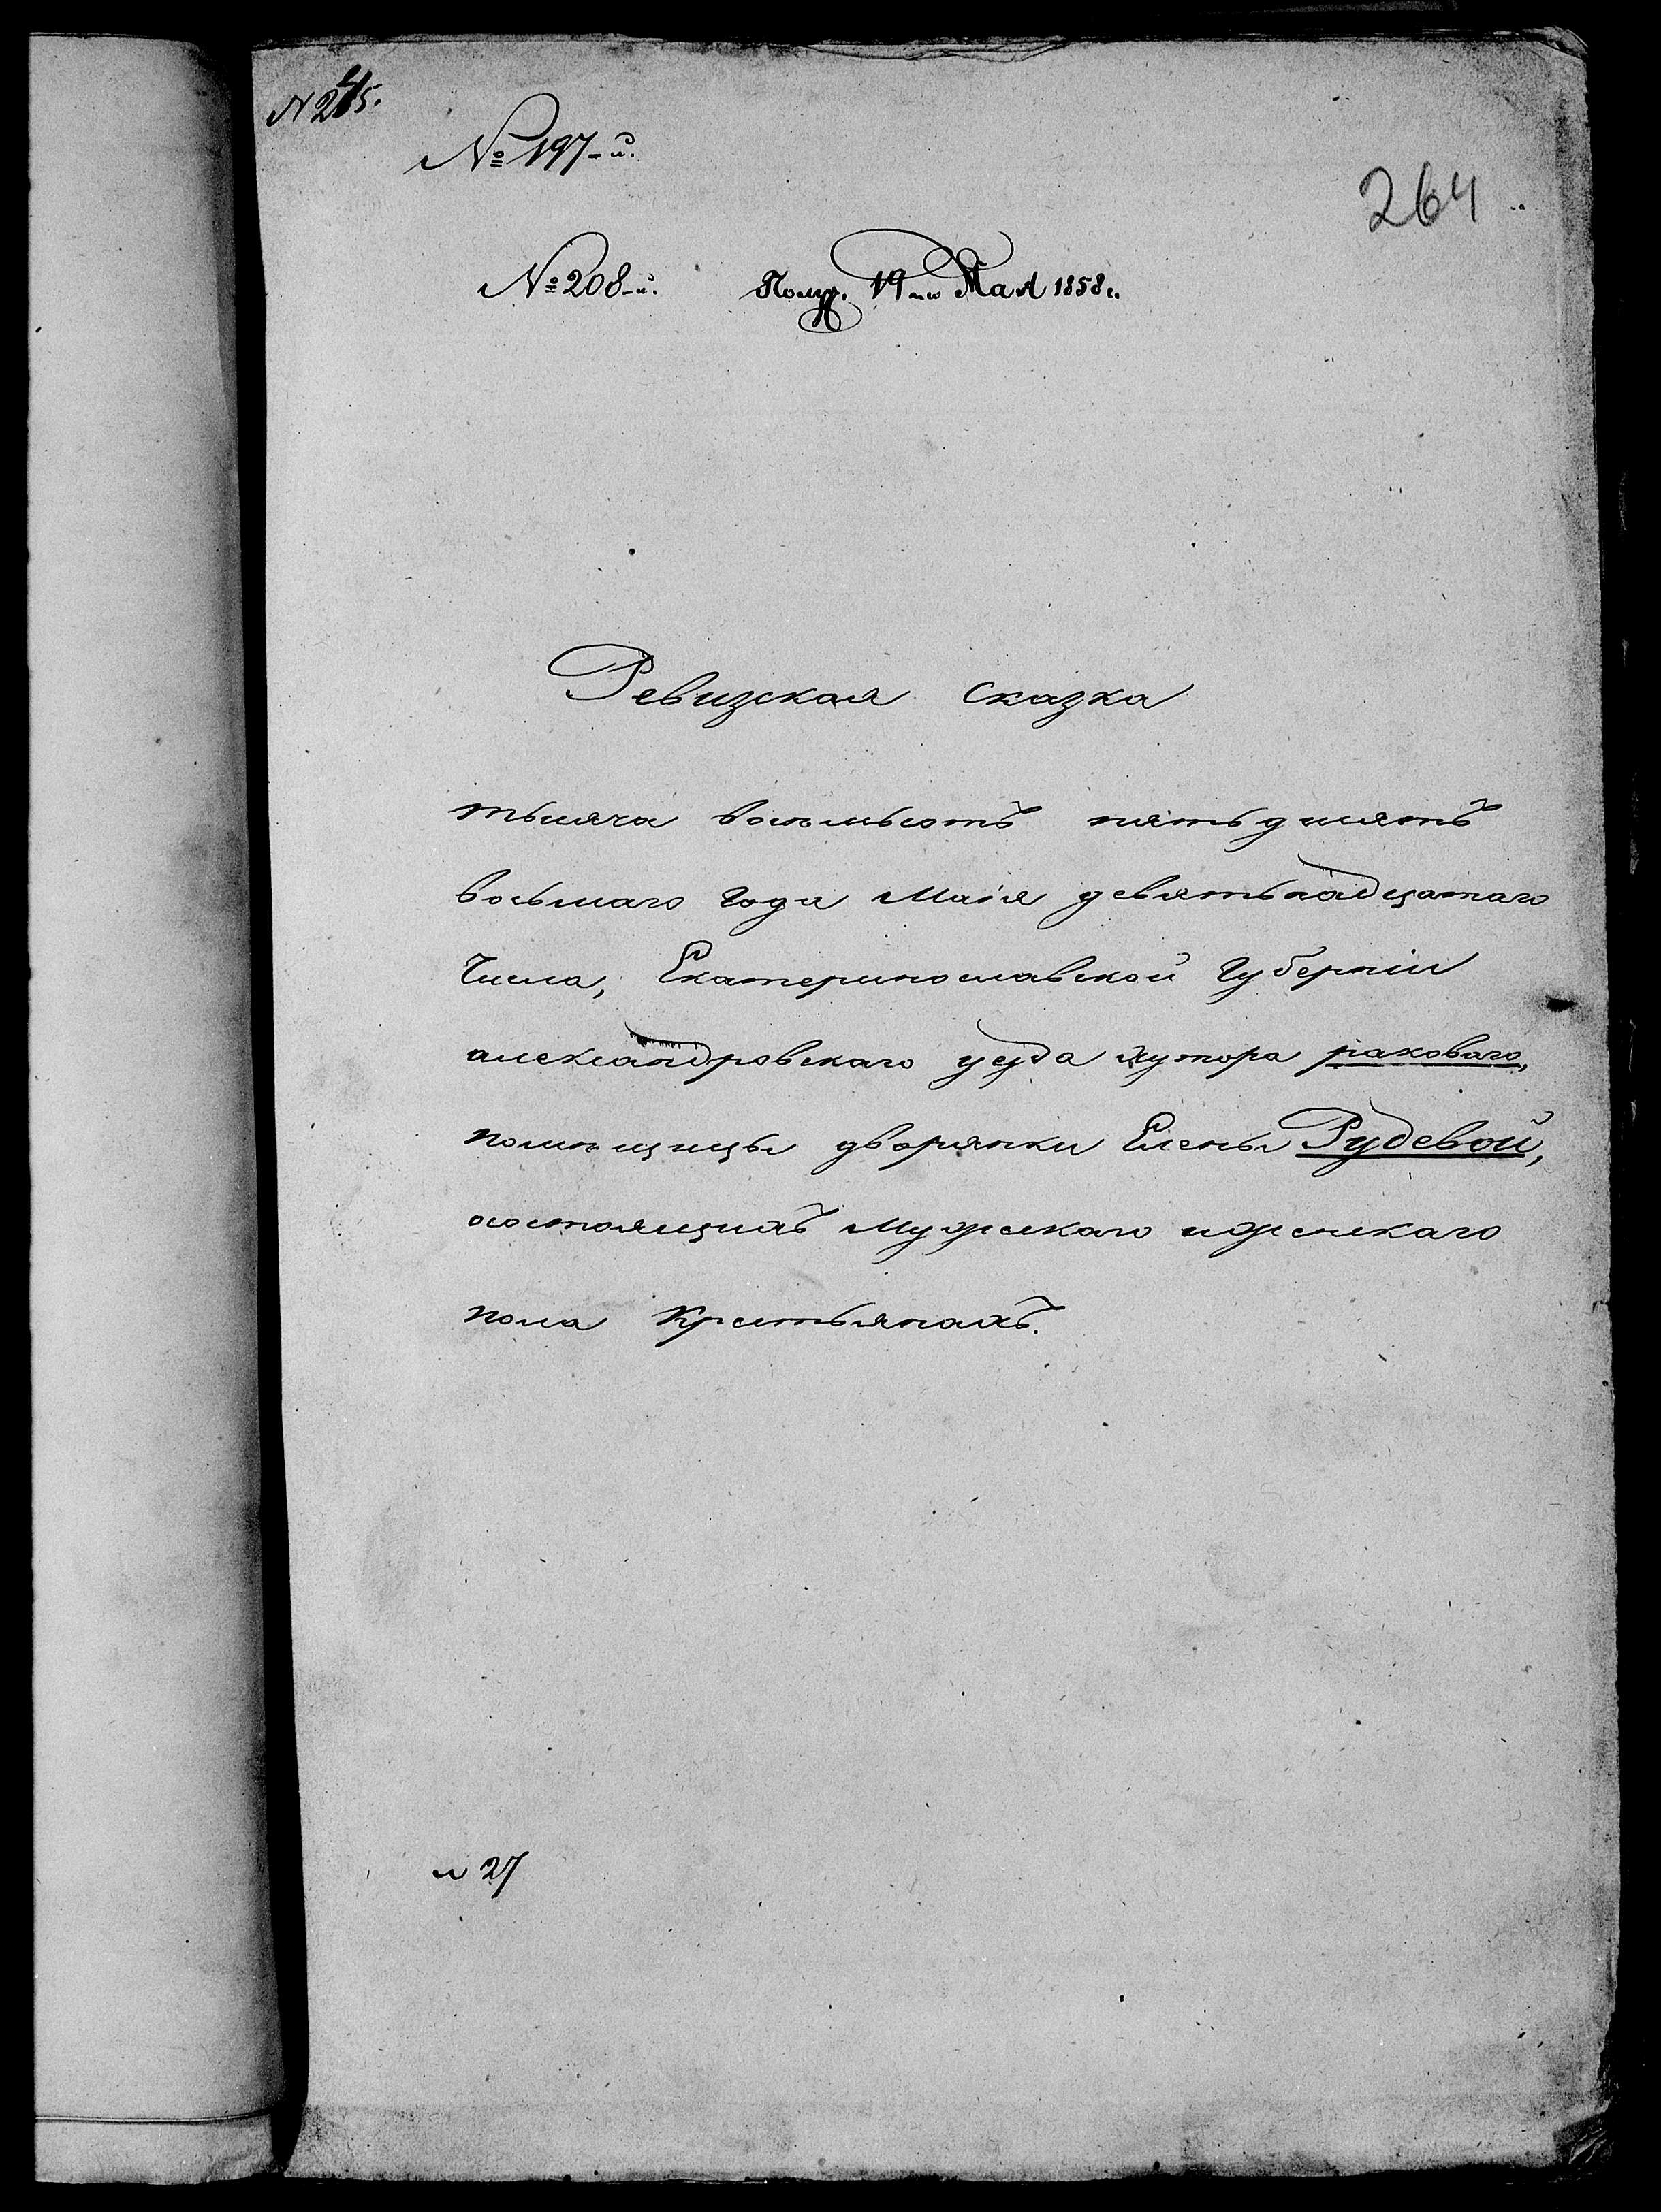 № 197-й.
264
№ 208-й. Получ. 19го Мая 1858 г.
Ревизская сказка
тысяча восемьсотъ пятьдесятъ
восьмаго года Маія девятьнадцатаго
Числа, Екатеринославской Губерніи
александровскаго уезда хутора раковаго,
помещицы дворянки Елены Рудевой,
осостоящихъ Мужескаго иженскаго
пола Крестьянахъ.
№ 27